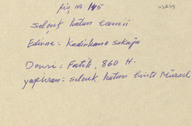 fiş no 145
selçuk hatun camii
Edirne: Kadınhano sokağı
Devri: Fatih, 860 H.
yaptıran: selçuk hatun binti Murad